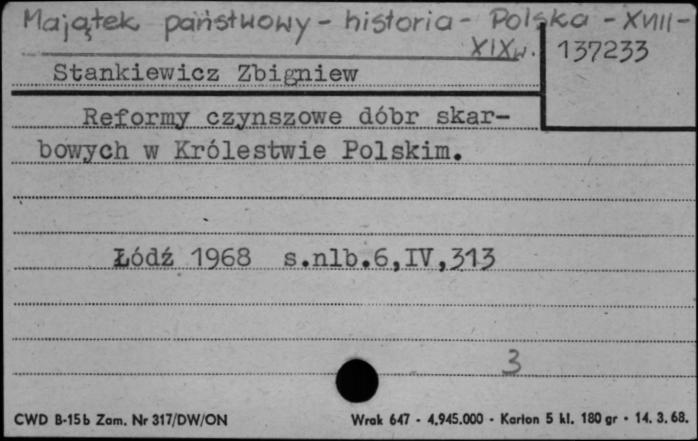 Majątek państwowy - historia - Polska - XVIII -
XIXw.
137233
Stankiewicz Zbigniew
Reformy czynszowe dóbr skar-
bowych w Królestwie Polskim.
Łódź 1968 s.nlb.6,IV,313
3
CWD B-15b Zam. Nr 317/DW/ON Wrak 647 - 4.945.000 - Karton 5 kl. 180 gr - 14. 3. 68.